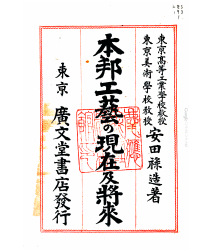 東京高等工業學校教授
東京美術學校教授
安田祿造著
本邦工藝の現在及將來
東京
廣文堂書店發行